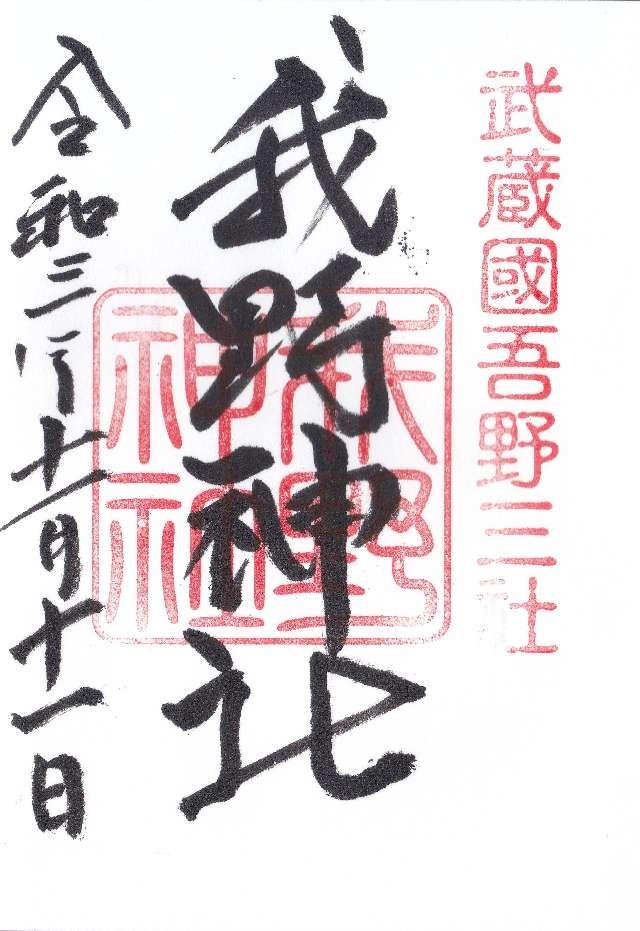 武蔵國吾野三社
我野神社
我野神社
令和三年十一月十一日